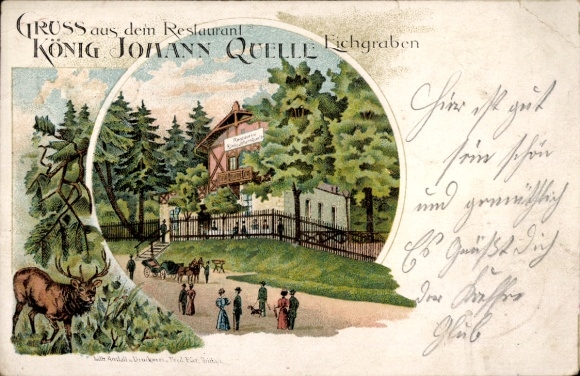 Gruss aus dem Restaurant
König Johann Quelle Eichgraben
Restaurant
Hier ist gut
sein schön
und gemüthlich
Es Grüßt Dich
der
Lith. Anstalt u. Druckerei v.